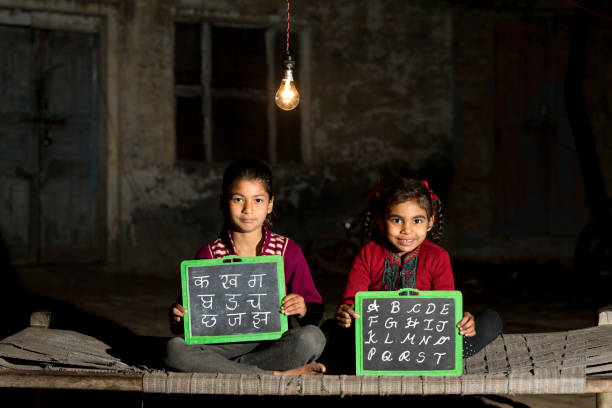 क ख ग
घ ड च
छ ज झ
A B C D E
F G H I J
K L M N O
P Q R S T